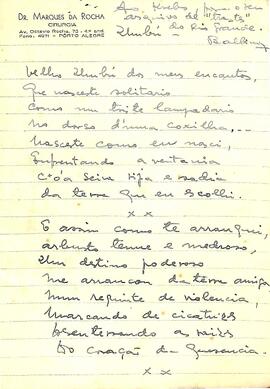 DR. MARQUES DA ROCHA
CIRURGIA
Av. Octavio Rocha, 73 - 4º and.
Fone, 4971 - PORTO ALEGRE
Ao Krebs, para o seu
arquivo de
Umbú do Rio Grande.
Balbino
Velho Umbú dos meus encantos,
Que nasceste solitario
Como um triste lampadario
No dorso d'uma coxilha...
Nasceste como eu nasci,
Enfrentando a ventania
C'oa seiva rija e sadia
da terra que eu escolhi.
x x
E assim como te arranquei,
arbusto tenue e medroso,
Um destino poderoso
me arrancou da terra amiga
Num requinte de violencia,
Marcando de cicatrizes
Desenterrando as raizes
Do coração da Querencia.
x x